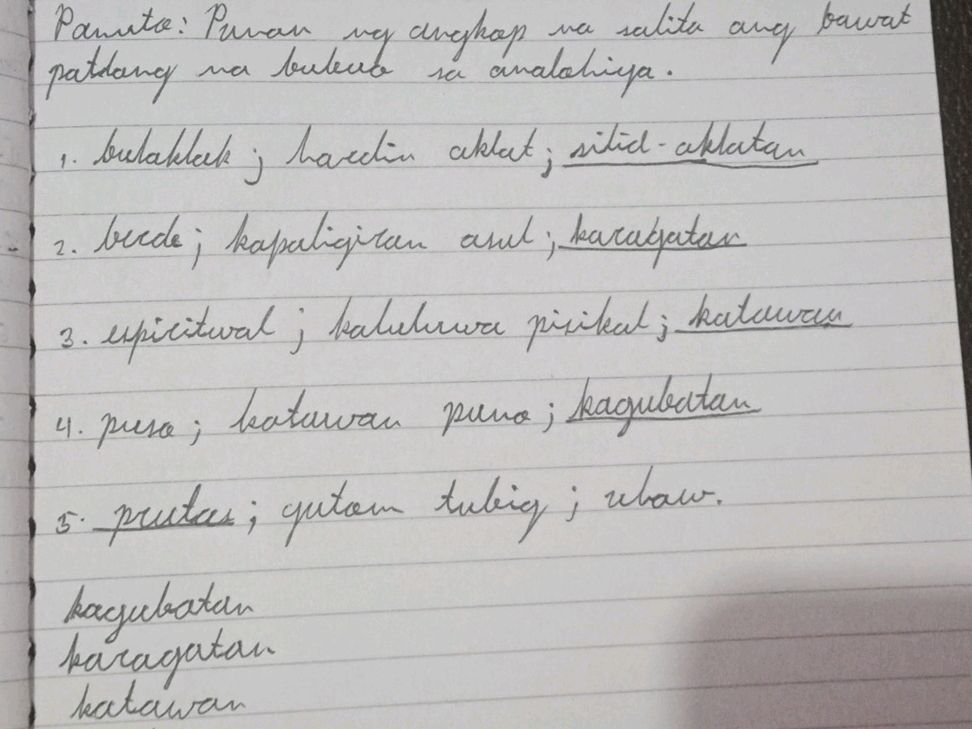 Panuto: Punan ng angkop na salita ang bawat
patdang na bubuo sa analohiya.
1. bulaklak ; hardin aklat ; silid-aklatan
2. berde ; kapaligiran asul ; karagatan
3. espiritwal ; kaluluwa pisikal ; katawan
4. puso ; katawan puno ; kagubatan
5. prutas ; gutom tubig ; uhaw.
kagubatan
karagatan
katawan